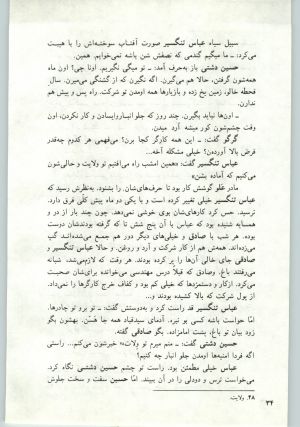 سبیل سیاه عباس تنگسیر صورت آفتاب سوخته‌اش را با هیبت
می‌کرد: ــ ما میگیم گندمی که نصفش شن باشه نمی‌خوایم. همین.
حسین دشتی باز به‌حرف آمد: ــ تو میگی نگیریم. اونا چی؟ اون ماه
همه‌شون گرفتن، حالا هم می‌گیرن. اگه نگیرن که از گشنگی می‌میرن. سال
قحطه خالو، زمین یخ زده و بازیارها همه اومدن تو شرکت. راه پس و پیش هم
ندارن.
ــ اون‌ها نباید بگیرن. چند روز که جلو انبار وایسادن و کار نکردن، اون
وقت چشم‌شون کور میشه آرد میدن.
گرگو گفت: ــ این همه کارگر کجا برن؟ می‌فهمی هر کدوم چه‌قدر
قرض بالا آوردن؟ خیلی مشکله آخه.
عباس تنگسیر گفت: «همین امشب راه می‌افتیم تو ولایت و حالی‌شون
می‌کنیم که آماده بشن»
مادر علو گوشش کار بود تا حرف‌های‌شان را بشنود. به‌نظرش رسید که
عباس تنگسیر خیلی تغییر کرده است و با یکی دو ماه پیش کلی فرق دارد.
ترسید. حس کرد کارهای‌شان بوی خوشی نمی‌دهد. چون چند بار از در و
همسایه شنیده بود که عباس با آن پنج شش تا که گرفته بودندشان دوست
بوده. هر شب با صادق و خیلی‌های دیگر دور هم جمع می‌شده‌اند. گپ
می‌زده‌اند. همه‌ش هم از کار شرکت و آرد و روغن. و حالا عباس تنگسیر و
صادقی جای خالی آن‌ها را پر کرده بودند. هر وقت که لازم‌می‌شد، شبانه
می‌رفتند باغ. وصادق که قبلا درس مهندسی می‌خوانده برای‌شان صحبت
می‌کرد. ازکار و دستمزدها که خیلی هم کم بود و کفاف خرج کارگرها نمی‌داد.
از پول شرکت که بالا کشیده بودند و...
عباس تنگسیر قد راست کرد و به‌دودستش گفت: ــ تو برو تو چادرها.
اما حواست باشه کسی بو نبره. آدمای سیدقباد همه جا هَسّن. بهشون بگو
زود بیان تو باغ، پشت امامزاده. بگو صادقی گفته.
حسین دشتی گفت: ــ منم میرم تو ولات²⁸ خبرشون می‌کنم... راستی
اگه فردا امنیه‌ها اومدن جلو انبار چه کنیم؟
عباس خیلی مطمئن بود. راست تو چشم حسین دشتی نگاه کرد.
می‌خواست ترس و دودلی را در آن ببیند. اما حسین سفت و سخت جلوش
۲۸. ولایت.
۳۴